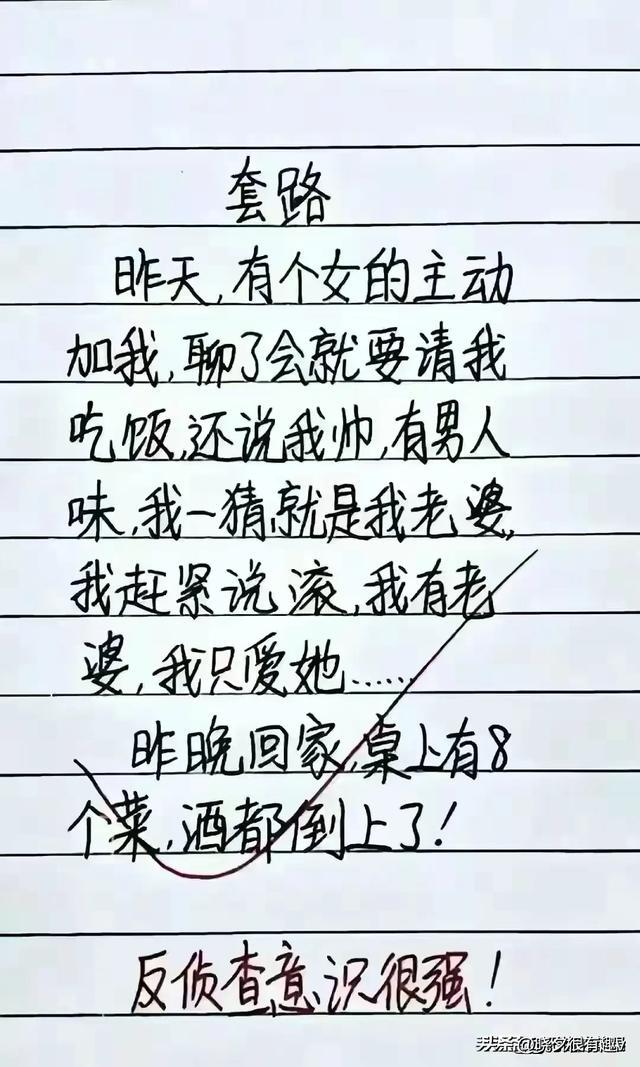 套路
昨天,有个女的主动
加我,聊了会就要请我
吃饭,还说我帅,有男人
味,我一猜就是我老婆,
我赶紧说滚,我有老
婆,我只爱她……
昨晚回家,桌上有8
个菜,酒都倒上了!
反侦查意识很强!
头条@晓夕很有趣